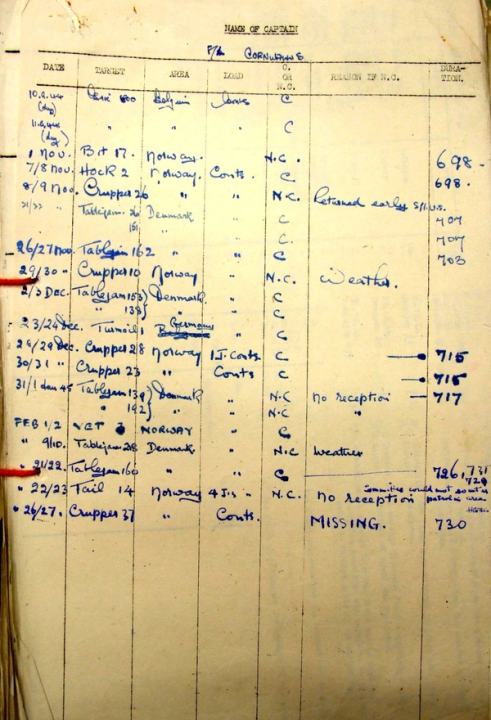 NAME OF CAPTAIN
F/L CORNWALL
DATE TARGET AREA LOAD C. OR N.C. REASON IF N.C. DURATION.
10.9.44 (day) 500 Belgium C
(day) " " C
1 Nov. Bit 17. Norway. N.C. 698
7/8 Nov. Hock 2 Norway. Conts. C 698.
8/9 Nov. Crupper 26 " " N.C. Returned early S/I. U.S.
21/22 " Tablejam 26 Denmark " C 707
" C. 707
26/27 Nov. Tablejam 162 " " C 703
29/30 " Crupper 10 Norway " N.C. Weather.
2/3 DEC. Tablejam 153) Denmark. " C
" 138) " C
23/24 Dec. Turmoil 1 Germany " C
28/29 Dec. Crupper 28 Norway 1 J. Conts. C 715
30/31 " Crupper 23 " Conts C 715
31/1 Jan 45 Tablejam 139) Denmark " N.C No reception 717
" 192) " N.C "
FEB 1/2 VET 3 NORWAY " C
" 9/10. Tablejam 28 Denmark. " N.C Weather
" 21/22. Tablejam 160 " " C 726, 731
729
" 22/23 Tail 14 Norway 4 J.s " N.C. No reception
Committee could not
area
" 26/27. Crupper 37 " Conts. MISSING. 730